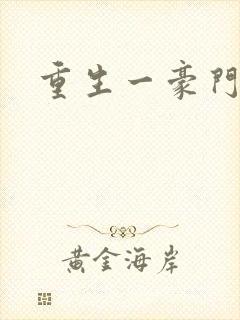 重生一豪門
黃金海岸